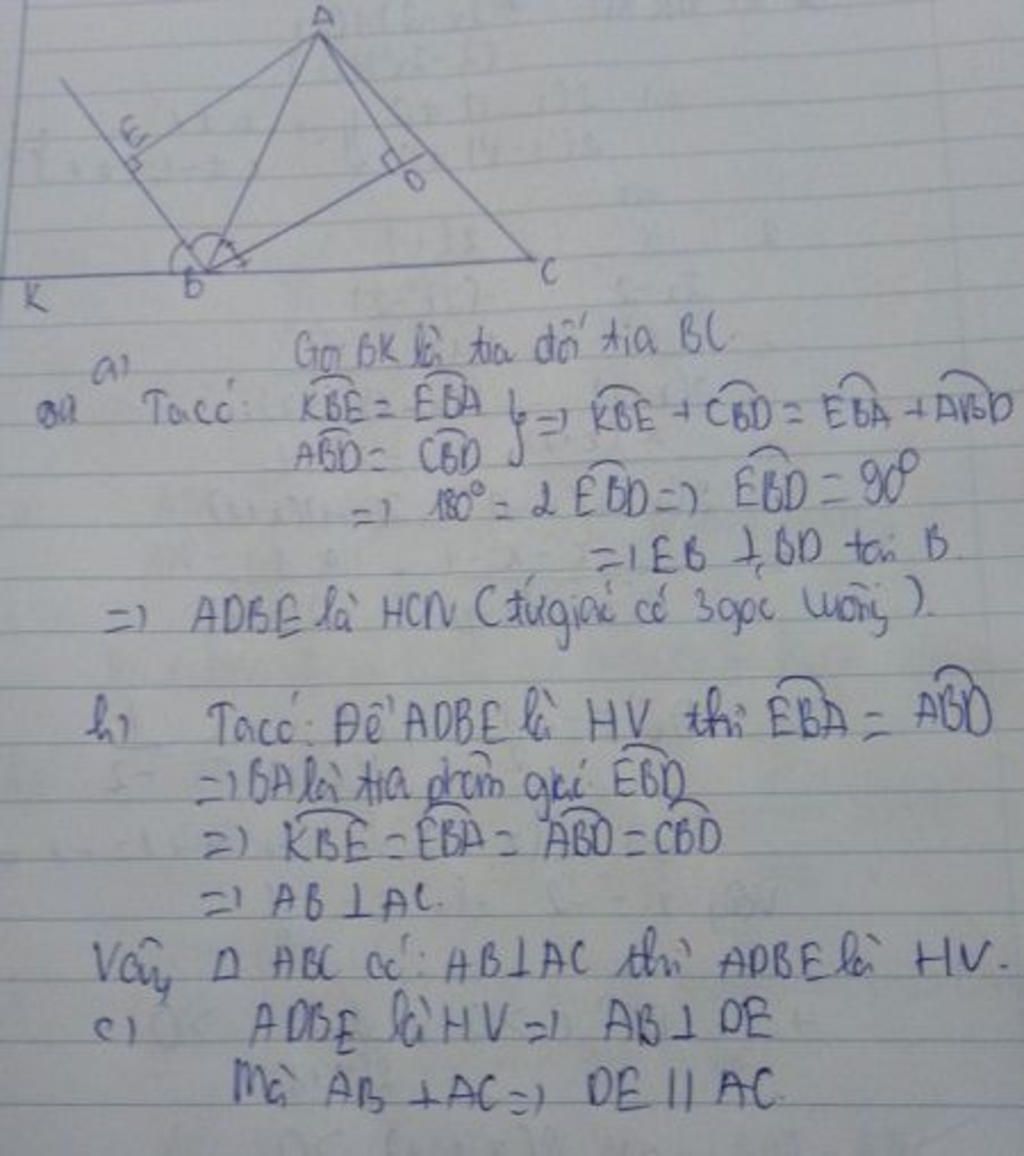 A
E
D
K
B
C
a) Gọi BK là tia đối tia BC.
Ta có: KBE = EBA
ABD = CBD } => KBE + CBD = EBA + ABD
=> 180° = 2 EBD => EBD = 90°
=> EB ⊥ BD tại B
=> ADBE là HCN (tứ giác có 3 góc vuông).
b) Ta có: Để ADBE là HV thì EBA = ABD
=> BA là tia phân giác EBD
=> KBE = EBA = ABD = CBD
=> AB ⊥ AC.
Vậy Δ ABC có: AB ⊥ AC thì ADBE là HV.
c) ADBE là HV => AB ⊥ DE
Mà AB ⊥ AC => DE || AC.